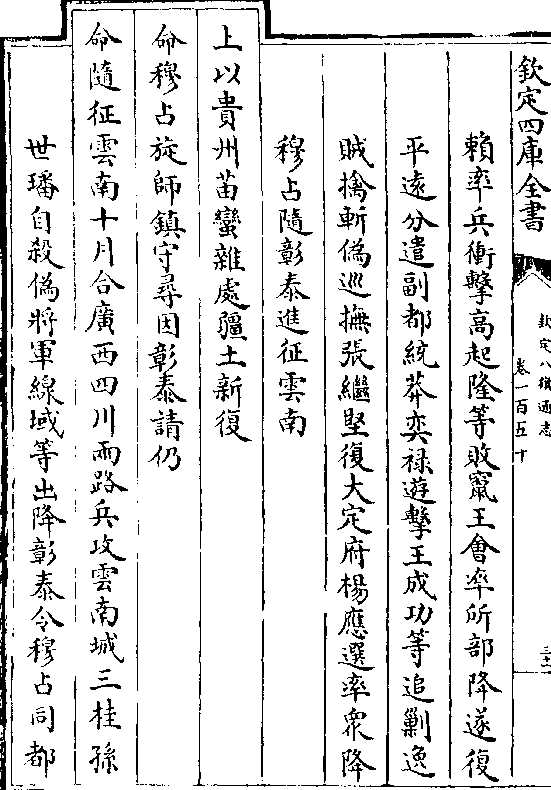 欽定四庫全書
欽定八旗通志
卷一百五十
三十一
賴率兵衝擊高起隆等敗竄王會率所部降遂復
平遠分遣副都統莽奕禄遊擊王成功等追剿逸
賊擒斬偽巡撫張繼堅復大定府楊應選率衆降
穆占隨彰泰進征雲南
上以貴州苗蠻雜處疆土新復
命穆占旋師鎮守尋因彰泰請仍
命隨征雲南十月合廣西四川兩路兵攻雲南城三桂孫
世璠自殺偽將軍線域等出降彰泰令穆占同都